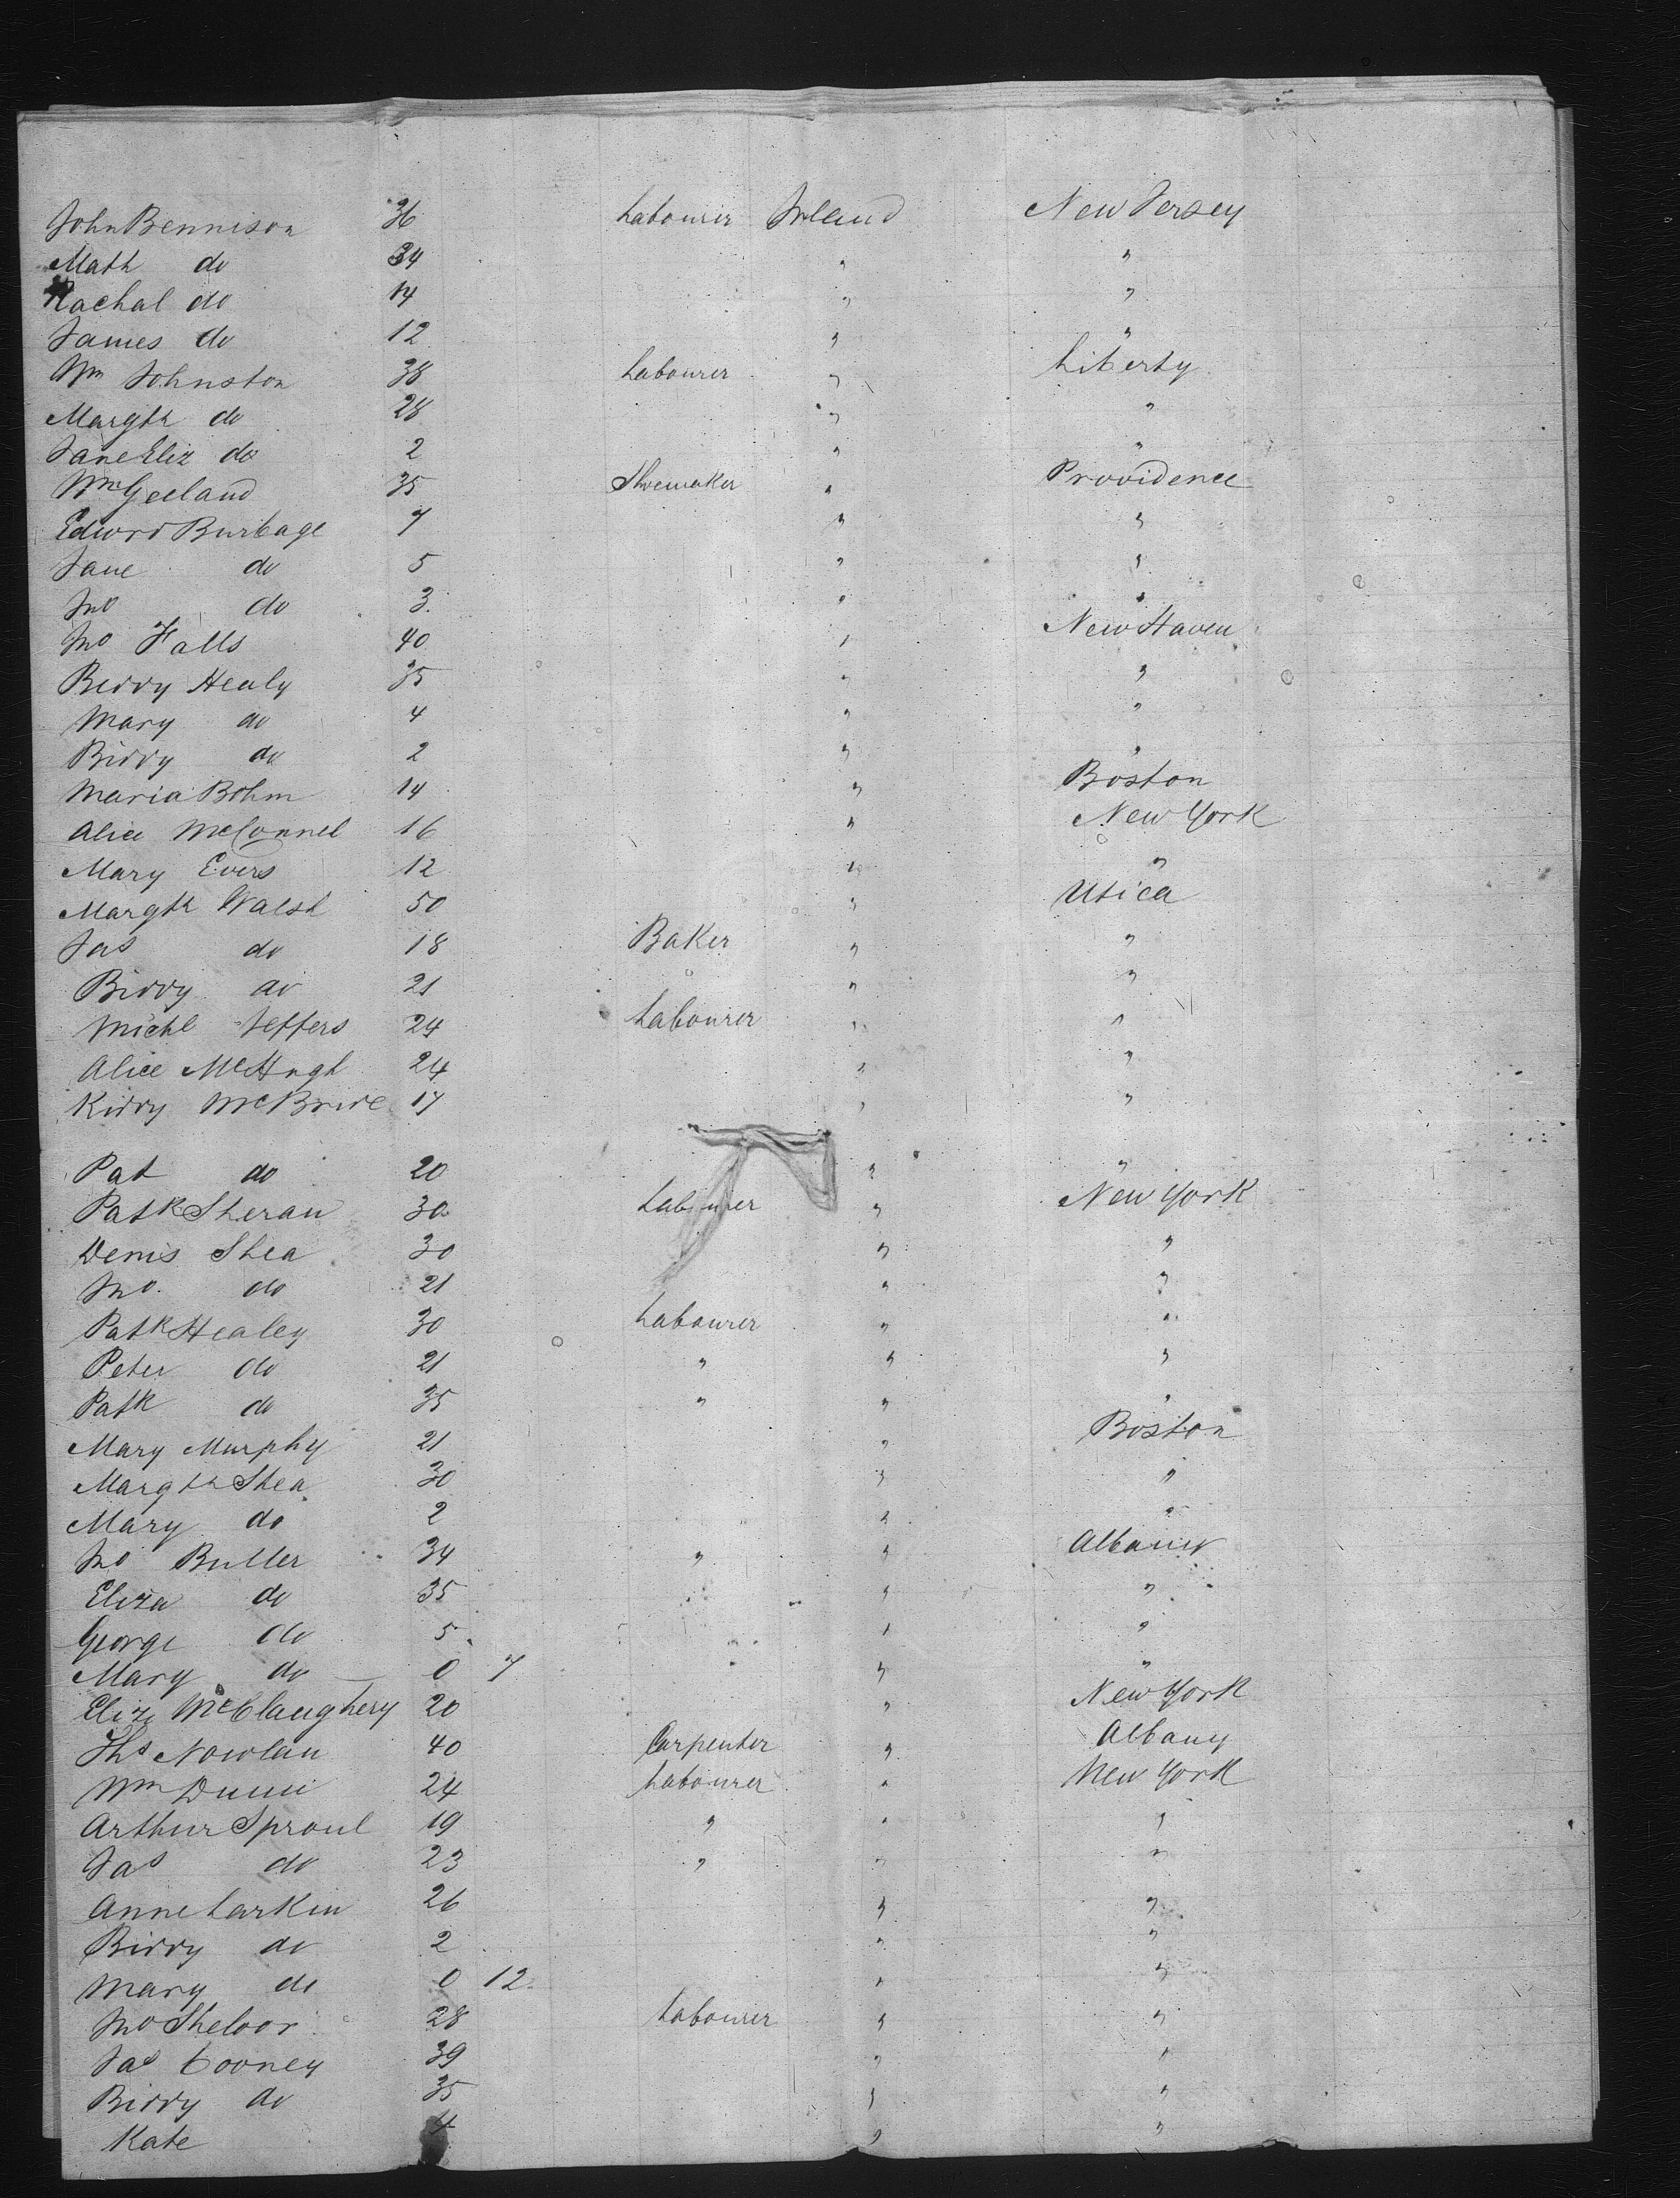 John Bennison 36 Labourer Ireland New Jersey
Math do 34 " "
Rachal do 14 " "
James do 12 " "
Wm Johnston 38 Labourer " Liberty
Margth do 28 " "
Jane Eliz do 2 " "
Wm Geeland 35 Shoemaker " Providence
Edword Burbage 7 " "
Jane do 5 " "
Jno do 3 " "
Jno Falls 40 " New Haven
Biddy Healy 35 " "
Mary do 4 " "
Biddy do 2 " "
Maria Bohm 14 " Boston
Alice McConnel 16 " New York
Mary Evers 12 " "
Margth Walsh 50 " Utica
Jas do 18 Baker " "
Biddy do 21 " "
Michl Jeffers 24 Labourer " "
Alice McHugh 24 " "
Kiddy McBride 17 " "
Pat do 20 " "
Patk Sheran 30 Labourer " New York
Denis Shea 30 " "
Jno. do 21 " "
Patk Healey 30 Labourer " "
Peter do 21 " " "
Patk do 35 " " "
Mary Murphy 21 " Boston
Margth Shea 30 " "
Mary do 2 " "
Jno Butler 34 " " Albany
Eliza do 35 " "
George do 5 " "
Mary do 0 7 " "
Eliz McClaughery 20 " New York
Ths Nowlan 40 Carpenter " Albany
Wm Dunn 24 Labourer " New York
Arthur Sproul 19 " " "
Jas do 23 " " "
Anne Larkin 26 " "
Biddy do 2 " "
Mary do 0 12 " "
Jno Sheloor 28 Labourer " "
Jas Cooney 39 " "
Biddy do 35 " "
Kate 4 " "